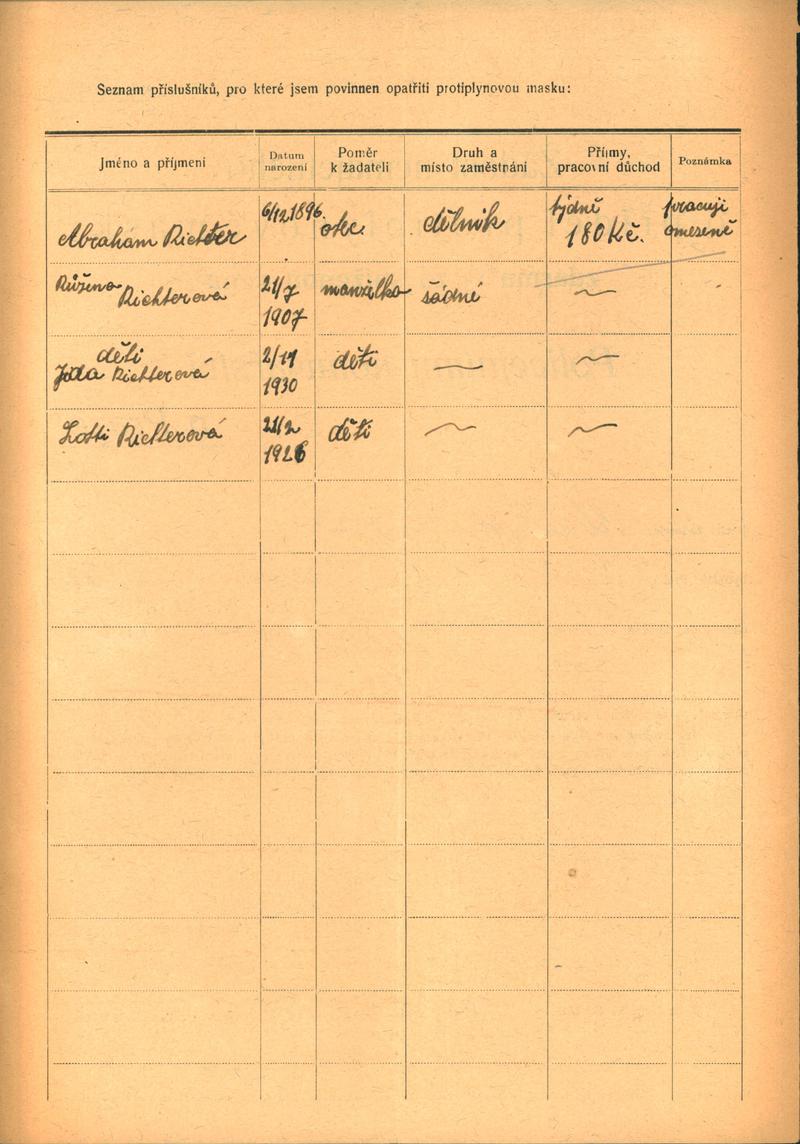 Seznam příslušníků, pro které jsem povinnen opatřiti protiplynovou masku:
Jméno a příjmení
Datum narození
Poměr k žadateli
Druh a místo zaměstnání
Příjmy, pracovní důchod
Poznámka
Abrahám Richter 6/12 1896. otec dělník týdně 180 Kč. pracuji omezeně
Růžena Richterová 21/7 1907 manželka žádné
děti
Richterová 2/11 1930 děti
Lotti Richterová 21/2 1926 děti